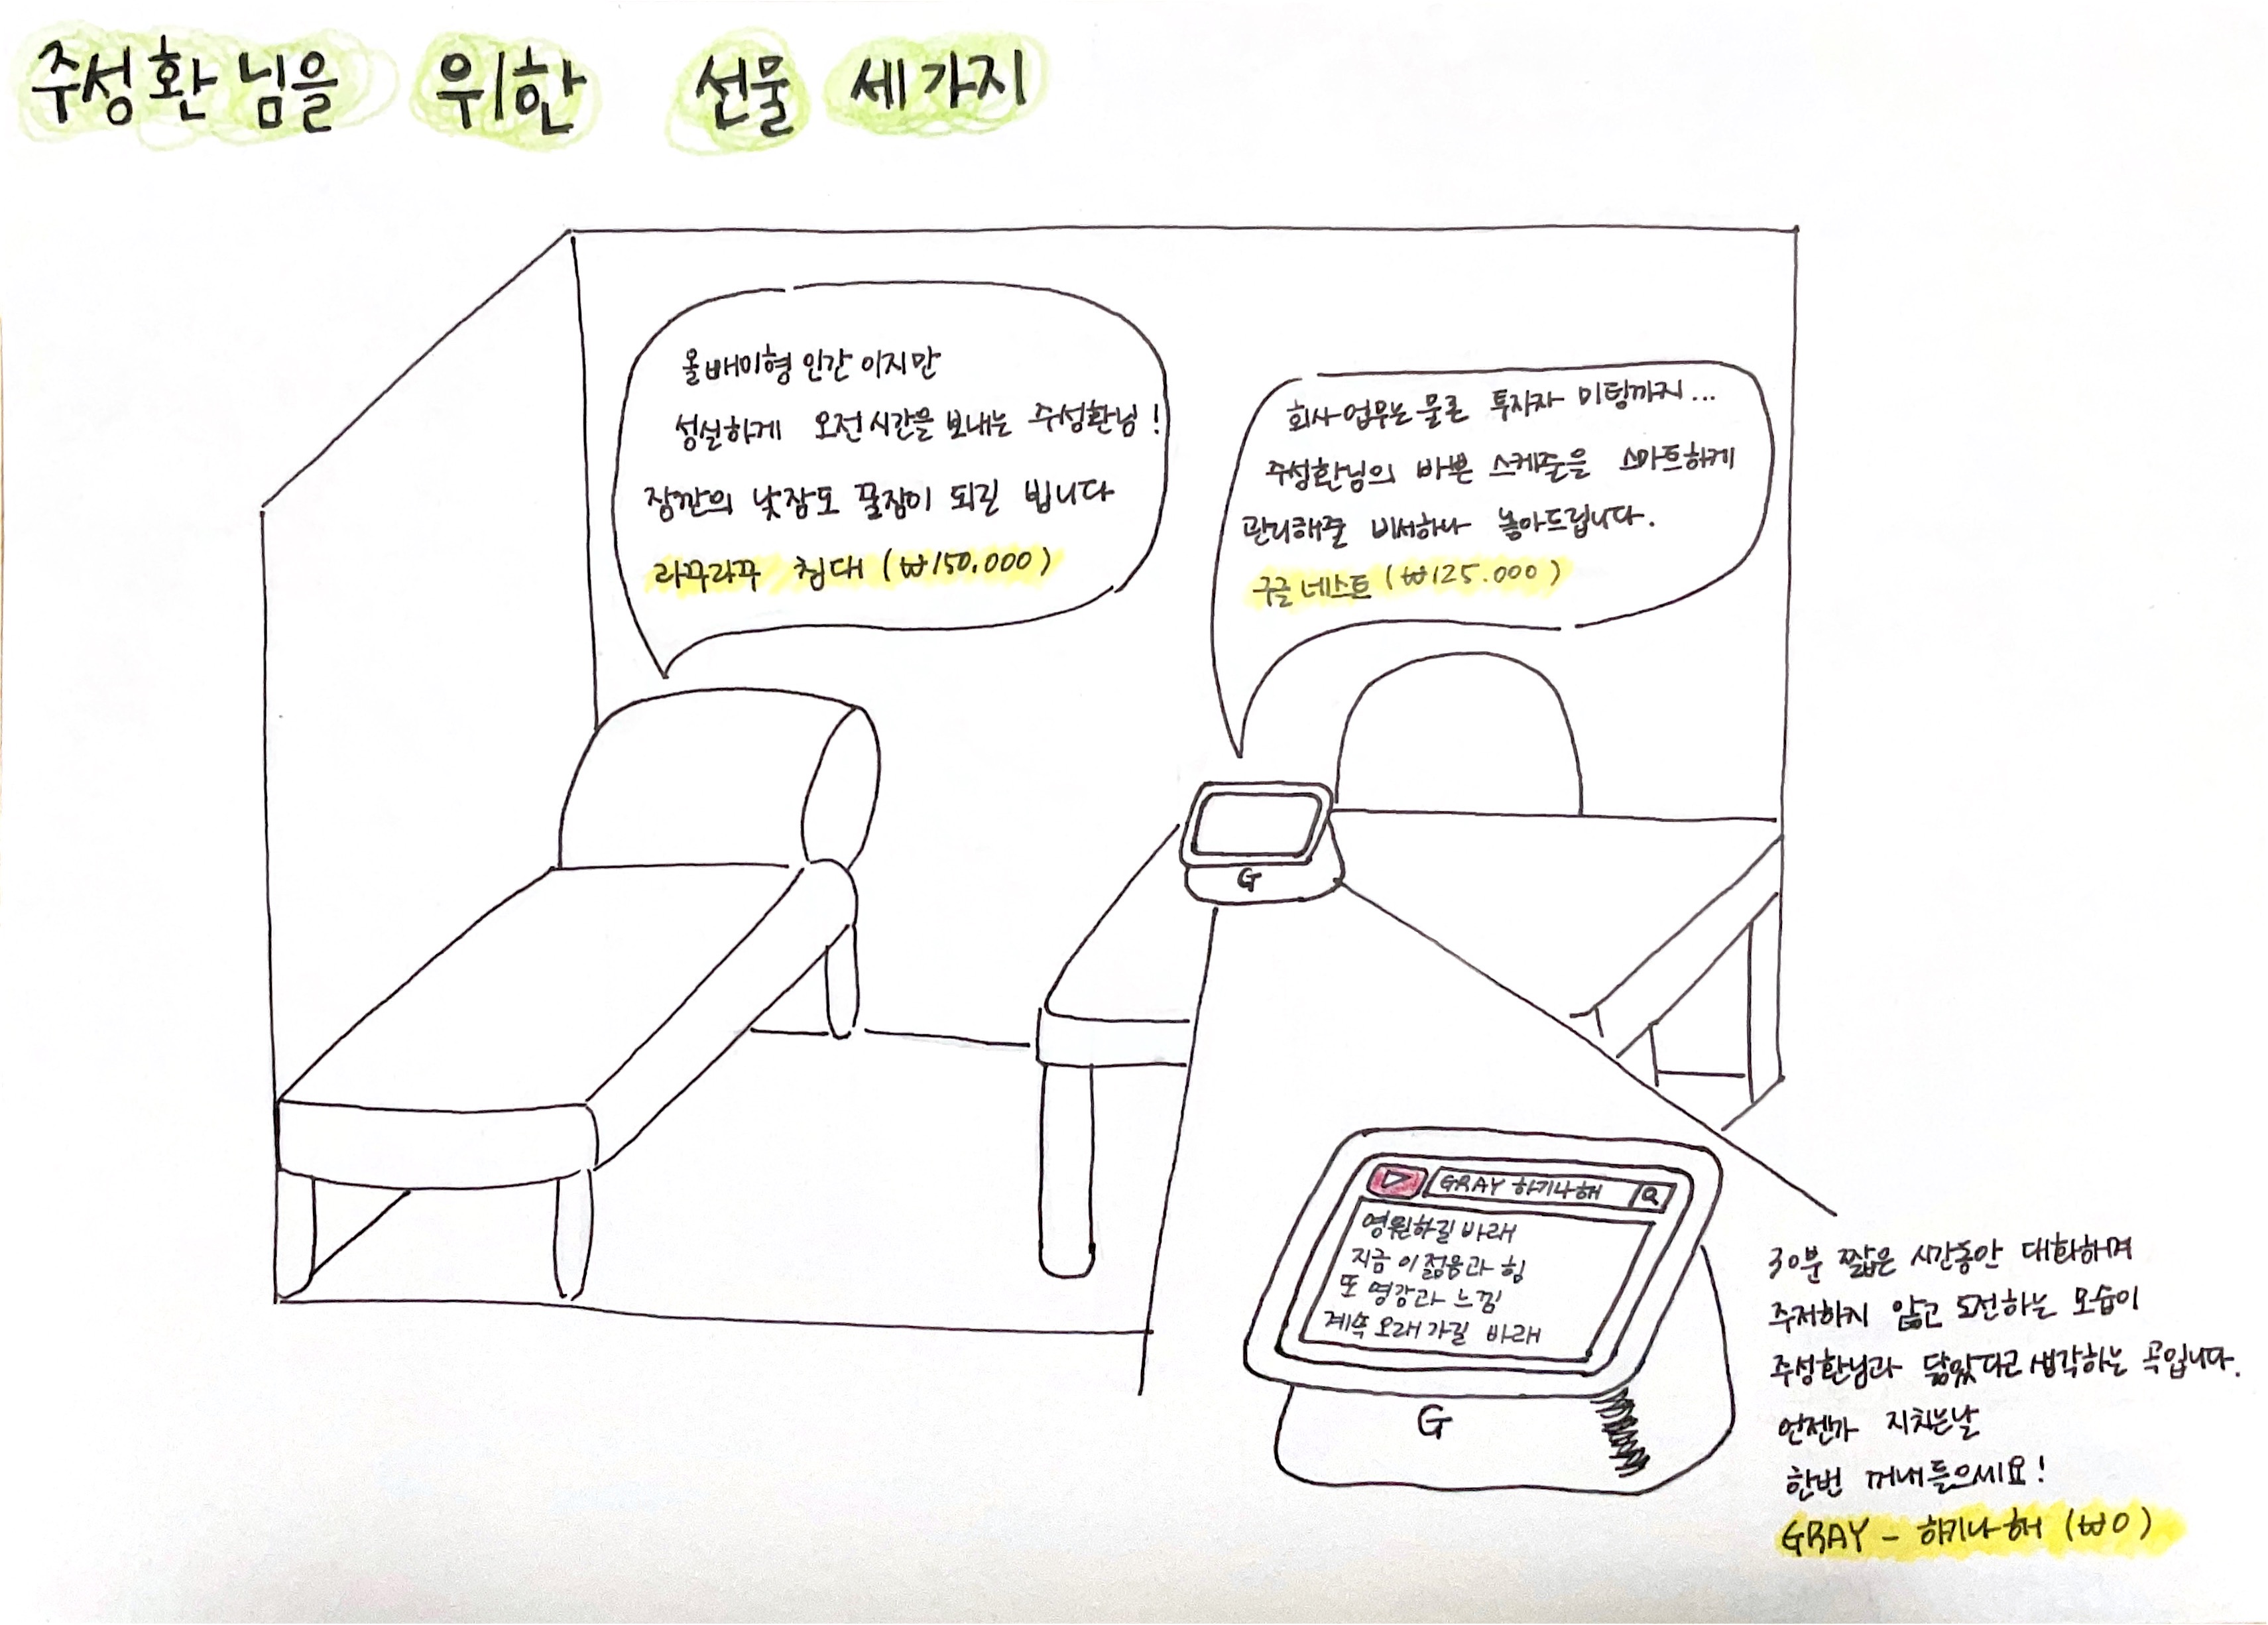 주성환님을 위한 선물 세가지
올빼미형 인간이지만
성실하게 오전시간을 보내는 주성환님!
잠깐의 낮잠도 꿀잠이 되길 빕니다
라꾸라꾸 침대 (₩150.000)
회사업무는 물론 투자자 미팅까지...
주성환님의 바쁜 스케줄을 스마트하게
관리해줄 비서하나 놓아드립니다.
구글 네스트 (₩125.000)
G
GRAY 하기나해
영원하길 바래
지금 이 젊음과 힘
또 영감과 느낌
계속 오래 가길 바래
G
30분 짧은 시간동안 대화하며
주저하지 않고 도전하는 모습이
주성환님과 닮았다고 생각하는 곡입니다.
언젠가 지치는날
한번 꺼내들으세요!
GRAY - 하기나해 (₩0)